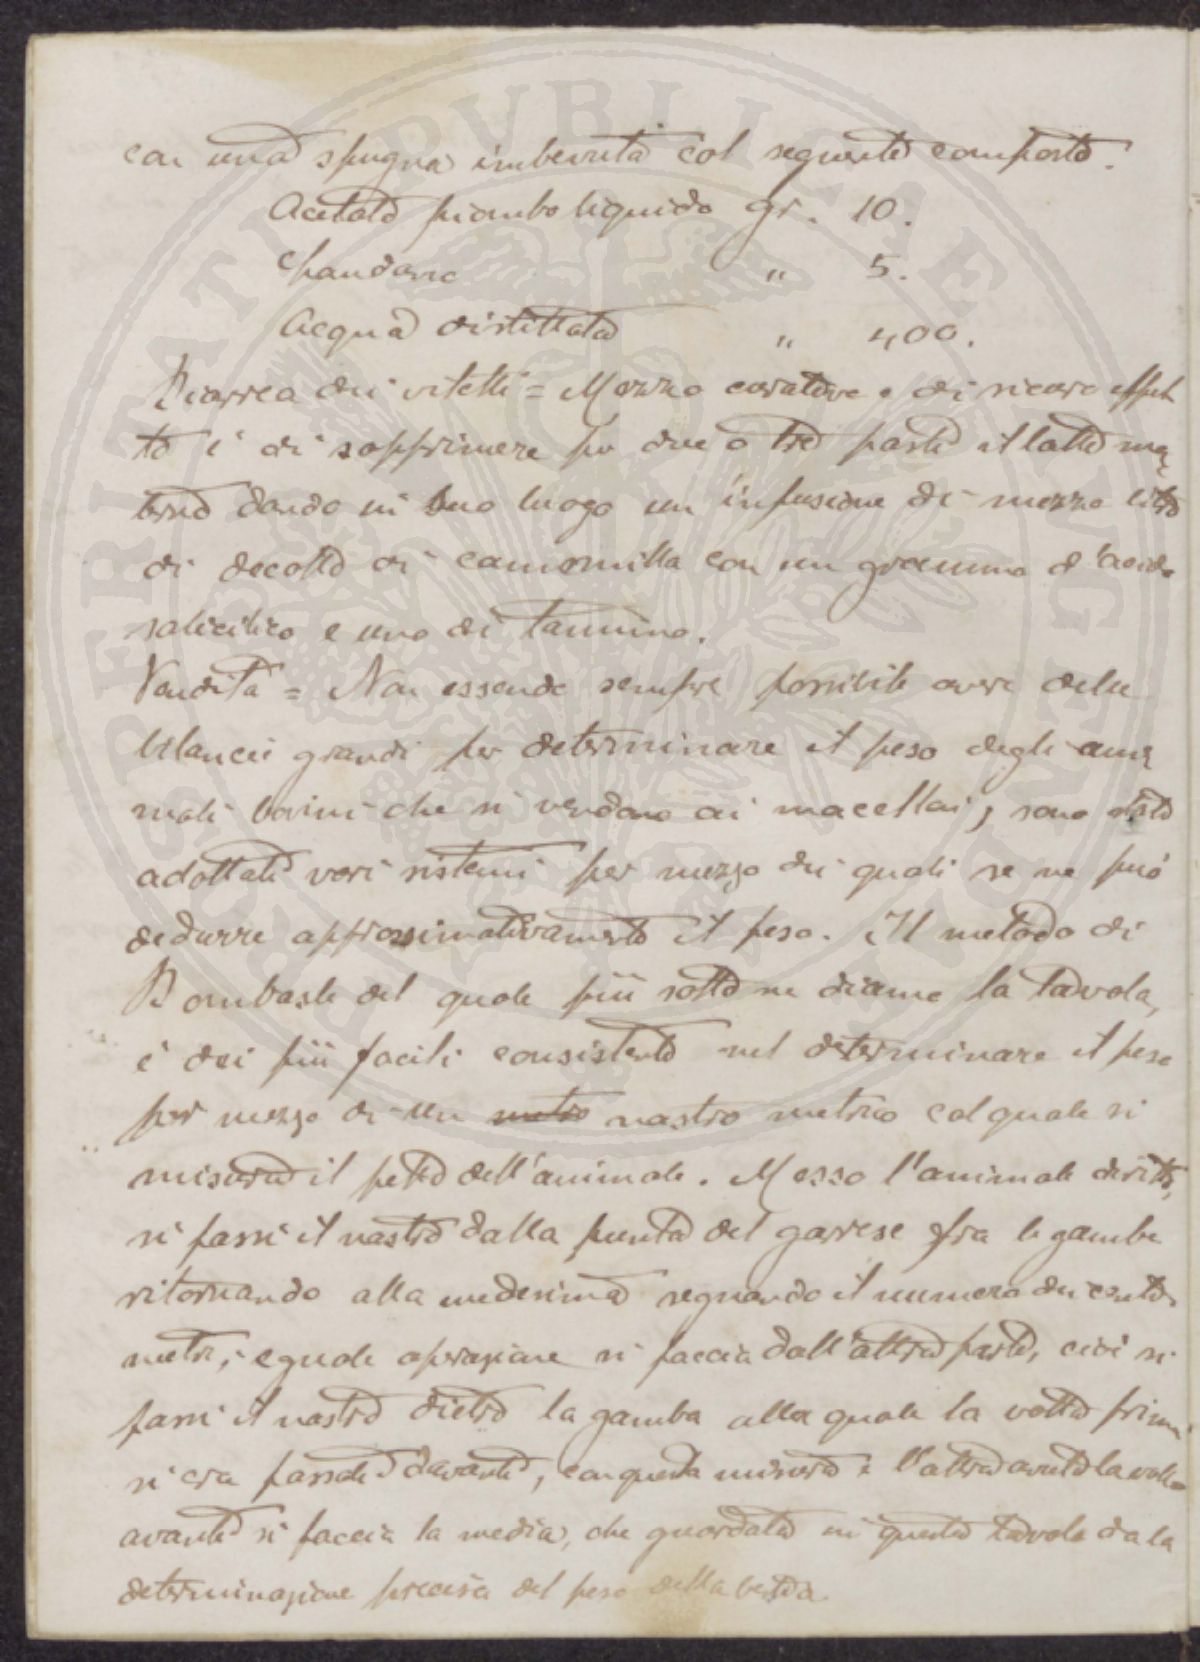 con una spugna imbevuta col seguente composto.
Acetato piombo liquido gr. 10.
" 5.
Acqua distillata " 400.
Diarrea dei vitelli = Mezzo curativo e di sicuro effet
to è di sopprimere per due o tre pasti il latte ma
terno dando in suo luogo un infusione di mezzo litro
di decotto di camomilla con un gramma d'acido
salicilico e uno di tannino.
Vendita = Non essendo sempre possibile avere delle
bilancie grandi per determinare il peso degli ani
mali bovini che si vendono ai macellai, sono stati
adottati vari sistemi per mezzo dei quali se ne può
dedurre approssimativamente il peso. Il metodo di
Dombasle del quale più sotto ne diamo la tavola,
è dei più facili consistente nel determinare il peso
per mezzo di un metro nastro metrico col quale si
misura il petto dell'animale. Messo l'animale diritto,
si passi il nastro dalla punta del garrese fra le gambe
ritornando alla medesima segnando il numero dei centi
metri, eguale operazione si faccia dall'altra parte, cioè si
passi il nastro dietro la gamba alla quale la volta prima
si era passato davanti, con questa misura e l'altra avuta la volta
avanti si faccia la media, che guardata in questa tavola da la
determinazione precisa del peso della bestia.
PROSPERITATI PVBLICAE AVGENDAE